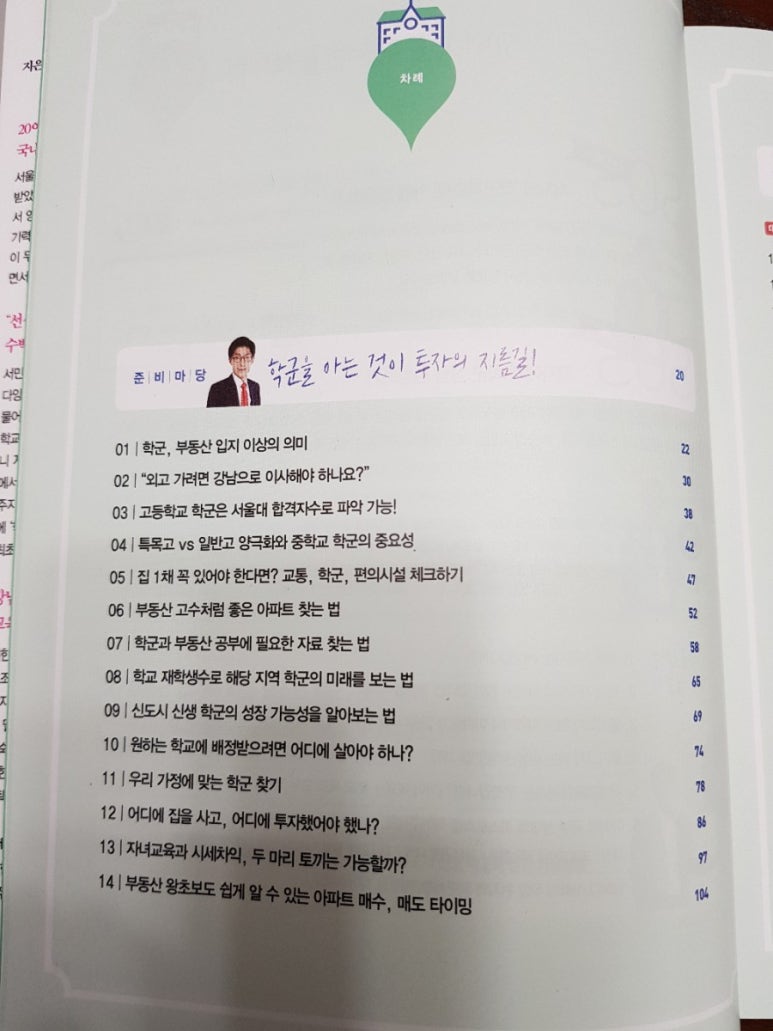 차례
준|비|마|당 학군을 아는 것이 투자의 지름길! 20
01 | 학군, 부동산 입지 이상의 의미 22
02 | “외고 가려면 강남으로 이사해야 하나요?” 30
03 | 고등학교 학군은 서울대 합격자수로 파악 가능! 38
04 | 특목고 vs 일반고 양극화와 중학교 학군의 중요성 42
05 | 집 1채 꼭 있어야 한다면? 교통, 학군, 편의시설 체크하기 47
06 | 부동산 고수처럼 좋은 아파트 찾는 법 52
07 | 학군과 부동산 공부에 필요한 자료 찾는 법 58
08 | 학교 재학생수로 해당 지역 학군의 미래를 보는 법 65
09 | 신도시 신생 학군의 성장 가능성을 알아보는 법 69
10 | 원하는 학교에 배정받으려면 어디에 살아야 하나? 74
11 | 우리 가정에 맞는 학군 찾기 78
12 | 어디에 집을 사고, 어디에 투자했어야 했나? 86
13 | 자녀교육과 시세차익, 두 마리 토끼는 가능할까? 97
14 | 부동산 왕초보도 쉽게 알 수 있는 아파트 매수, 매도 타이밍 104